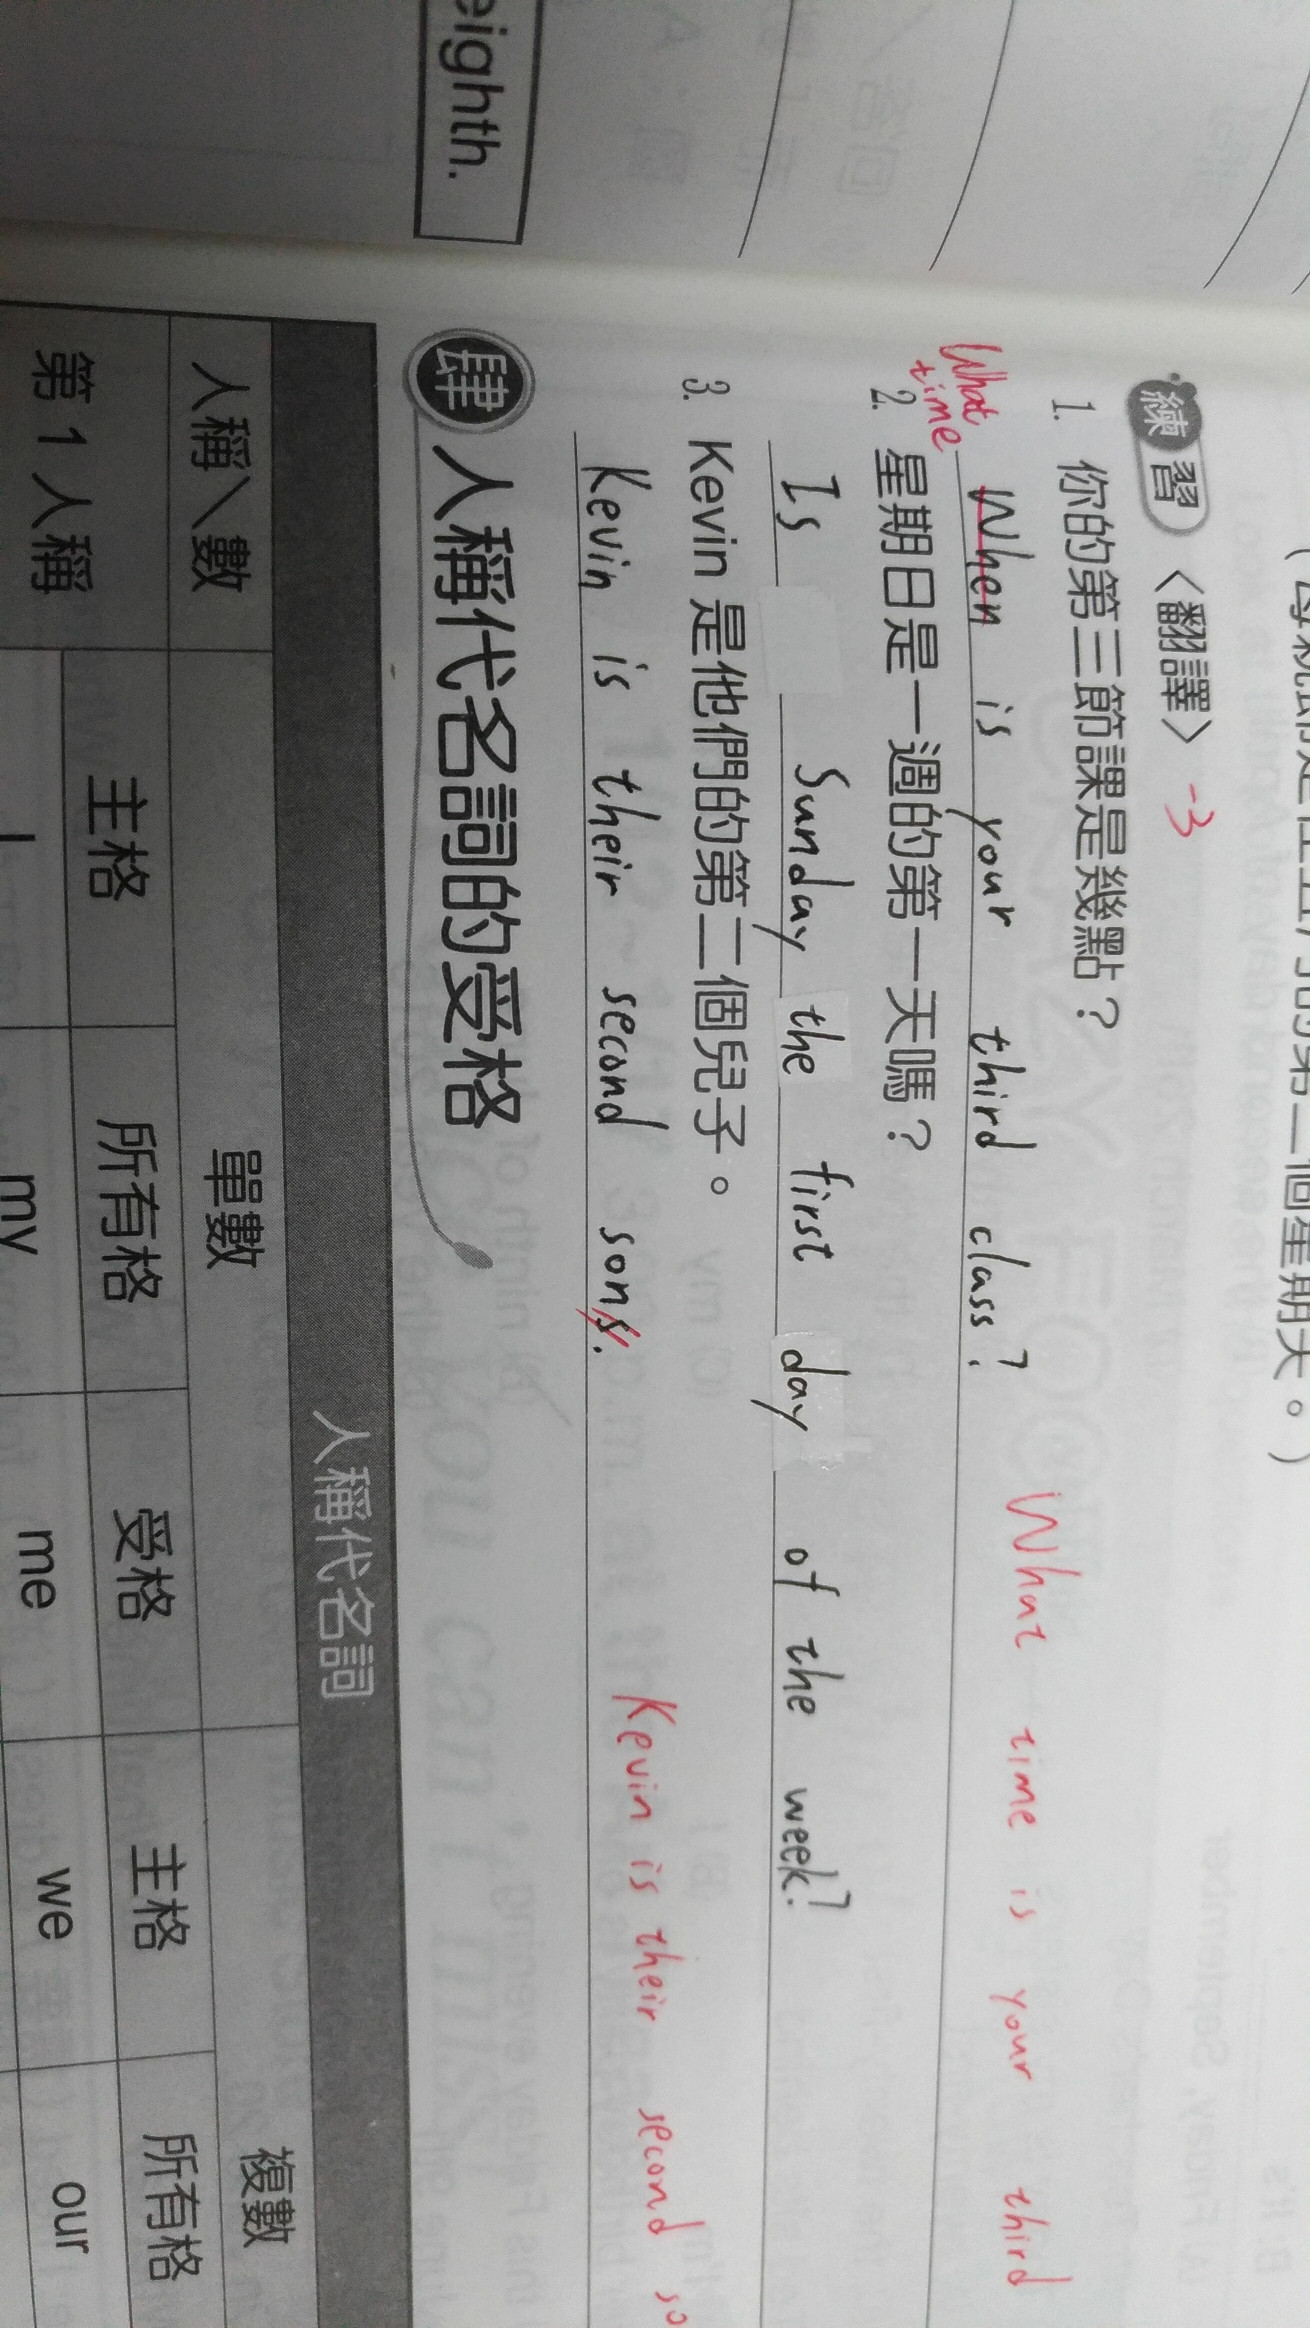 eighth.
練習 〈翻譯〉 -3
1. 你的第三節課是幾點？
What time
When is your third class? What time is your third
2. 星期日是一週的第一天嗎？
Is Sunday the first day of the week?
3. Kevin 是他們的第二個兒子。
Kevin is their second sons. Kevin is their second so
肆 人稱代名詞的受格
人稱代名詞
人稱＼數 單數 複數
主格 所有格 受格 主格 所有格
第 1 人稱 I my me we our